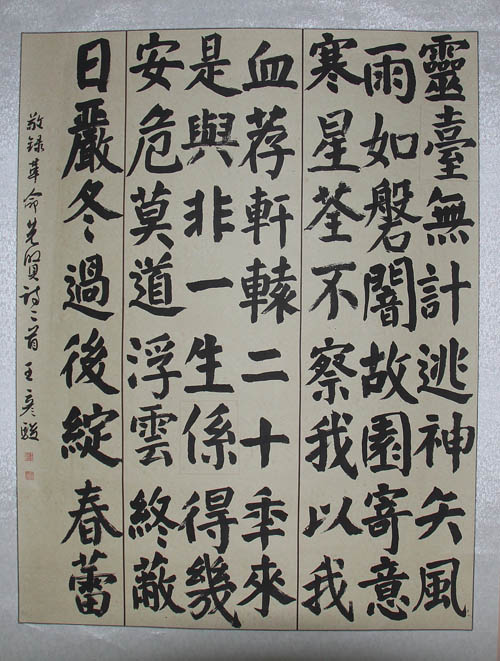 靈臺無計逃神矢風
雨如磐闇故園寄意
寒星荃不察我以我
血荐軒轅二十秊來
是與非一生係得幾
安危莫道浮雲終蔽
日嚴冬過後綻春蕾
敬録革命先贤诗二首 王彦駿